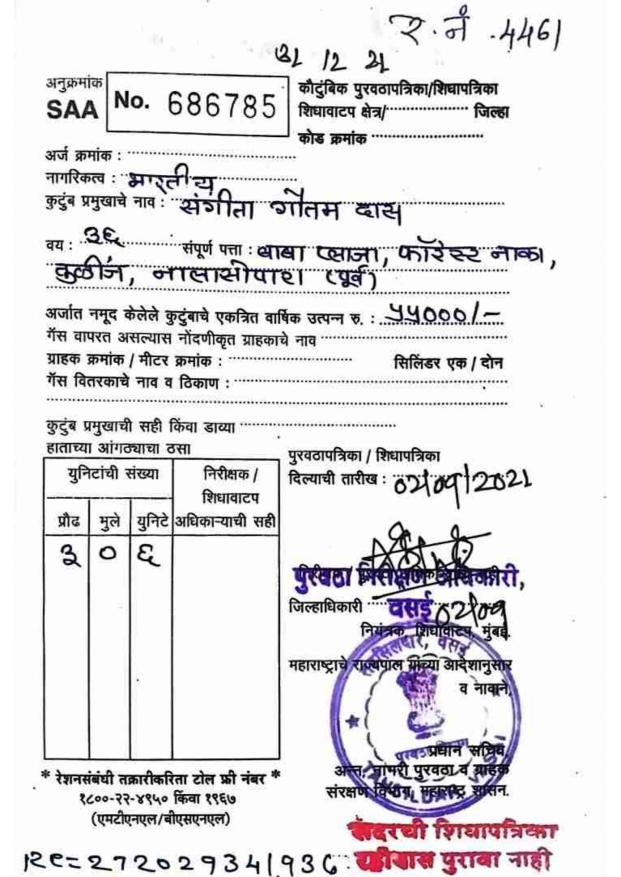 र. नं .4461
31 12 21
अनुक्रमांक
SAA No. 686785
कौटुंबिक पुरवठापत्रिका/शिधापत्रिका
शिधावाटप क्षेत्र/ जिल्हा
कोड क्रमांक
अर्ज क्रमांक :
नागरिकत्व : भारतीय
कुटुंब प्रमुखाचे नाव : संगीता गौतम दास
वय : ३६ संपूर्ण पत्ता : बाबा प्लाजा, फॉरेस्ट नाका,
तुळींज, नालासोपारा (पूर्व)
अर्जात नमूद केलेले कुटुंबाचे एकत्रित वार्षिक उत्पन्न रु. : ५५०००/-
गॅस वापरत असल्यास नोंदणीकृत ग्राहकाचे नाव
ग्राहक क्रमांक / मीटर क्रमांक : सिलिंडर एक / दोन
गॅस वितरकाचे नाव व ठिकाण :
कुटुंब प्रमुखाची सही किंवा डाव्या
हाताच्या आंगठ्याचा ठसा
युनिटांची संख्या निरीक्षक / शिधावाटप अधिकाऱ्याची सही
प्रौढ मुले युनिटे
३ ० ६
पुरवठापत्रिका / शिधापत्रिका
दिल्याची तारीख : 02/09/2021
पुरवठा निरीक्षण अधिकारी,
जिल्हाधिकारी वसई 02/09
नियंत्रक, शिधावाटप, मुंबई.
तहसिलदार, वसई
महाराष्ट्राचे राज्यपाल यांच्या आदेशानुसार
व नावाने,
पुरवठा विभाग
प्रधान सचिव
अन्न, नागरी पुरवठा व ग्राहक
संरक्षण विभाग, महाराष्ट्र शासन.
TAHSILDAR VASAI
* रेशनसंबंधी तक्रारीकरिता टोल फ्री नंबर *
१८००-२२-४९५० किंवा १९६७
(एमटीएनएल/बीएसएनएल)
सदरची शिधापत्रिका
रहीवास पुरावा नाही
RC=272029341936